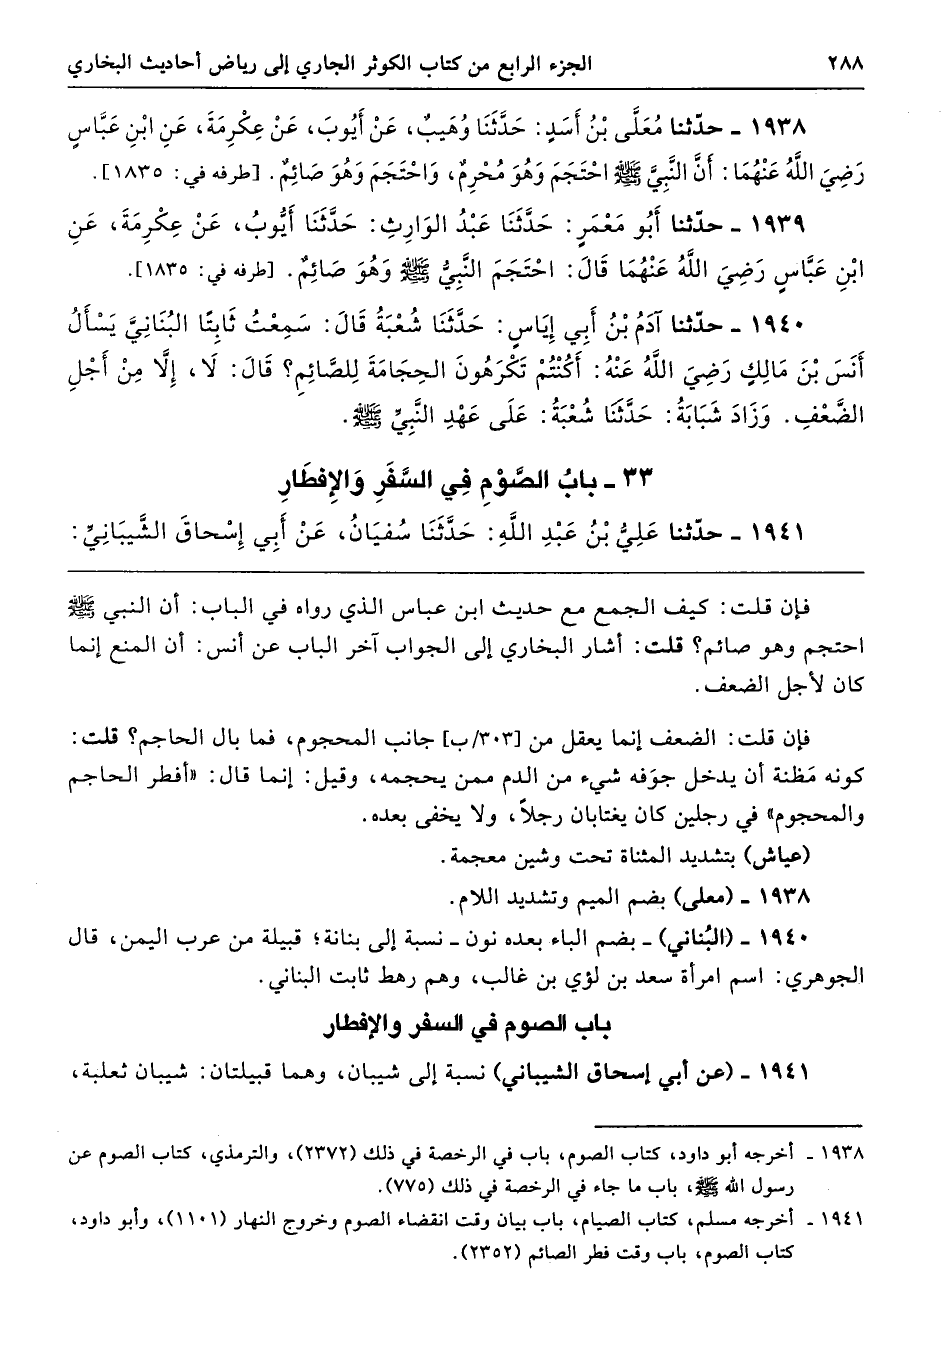 ٢٨٨ الجزء الرابع من كتاب الكوثر الجاري إلى رياض أحاديث البخاري
١٩٣٨ ـ حدّثنا مُعَلَّى بْنُ أَسَدٍ: حَدَّثَنَا وُهَيبٌ، عَنْ أَيُّوبَ، عَنْ عِكْرِمَةَ، عَنِ ابْنِ عَبَّاسٍ
رَضِيَ اللَّهُ عَنْهُمَا: أَنَّ النَّبِيَّ ﷺ احْتَجَمَ وَهُوَ مُحْرِمٌ، وَاحْتَجَمَ وَهُوَ صَائِمٌ. [طرفه في: ١٨٣٥].
١٩٣٩ ـ حدّثنا أَبُو مَعْمَرٍ: حَدَّثَنَا عَبْدُ الوَارِثِ: حَدَّثَنَا أَيُّوبُ، عَنْ عِكْرِمَةَ، عَنِ
ابْنِ عَبَّاسٍ رَضِيَ اللَّهُ عَنْهُمَا قَالَ: احْتَجَمَ النَّبِيُّ ﷺ وَهُوَ صَائِمٌ. [طرفه في: ١٨٣٥].
١٩٤٠ ـ حدّثنا آدَمُ بْنُ أَبِي إِيَاسٍ: حَدَّثَنَا شُعْبَةُ قَالَ: سَمِعْتُ ثَابِتًا البُنَانِيَّ يَسْأَلُ
أَنَسَ بْنَ مَالِكٍ رَضِيَ اللَّهُ عَنْهُ: أَكُنْتُمْ تَكْرَهُونَ الحِجَامَةَ لِلصَّائِمِ؟ قَالَ: لَا، إِلَّا مِنْ أَجْلِ
الضَّعْفِ. وَزَادَ شَبَابَةُ: حَدَّثَنَا شُعْبَةُ: عَلَى عَهْدِ النَّبِيِّ ﷺ.
٣٣ ـ بابُ الصَّوْمِ فِي السَّفَرِ وَالإِفطَارِ
١٩٤١ ـ حدّثنا عَلِيُّ بْنُ عَبْدِ اللَّهِ: حَدَّثَنَا سُفيَانُ، عَنْ أَبِي إِسْحاقَ الشَّيبَانِيِّ:
فإن قلت: كيف الجمع مع حديث ابن عباس الذي رواه في الباب: أن النبي ﷺ
احتجم وهو صائم؟ قلت: أشار البخاري إلى الجواب آخر الباب عن أنس: أن المنع إنما
كان لأجل الضعف.
فإن قلت: الضعف إنما يعقل من [٣٠٣/ب] جانب المحجوم، فما بال الحاجم؟ قلت:
كونه مَظنة أن يدخل جوَفه شيء من الدم ممن يحجمه، وقيل: إنما قال: «أفطر الحاجم
والمحجوم» في رجلين كان يغتابان رجلاً، ولا يخفى بعده.
(عياش) بتشديد المثناة تحت وشين معجمة.
١٩٣٨ ـ (معلى) بضم الميم وتشديد اللام.
١٩٤٠ ـ (البُناني) ـ بضم الباء بعده نون ـ نسبة إلى بنانة؛ قبيلة من عرب اليمن، قال
الجوهري: اسم امرأة سعد بن لؤي بن غالب، وهم رهط ثابت البناني.
باب الصوم في السفر والإفطار
١٩٤١ ـ (عن أبي إسحاق الشيباني) نسبة إلى شيبان، وهما قبيلتان: شيبان ثعلبة،
١٩٣٨ ـ أخرجه أبو داود، كتاب الصوم، باب في الرخصة في ذلك (٢٣٧٢)، والترمذي، كتاب الصوم عن
رسول الله ﷺ، باب ما جاء في الرخصة في ذلك (٧٧٥).
١٩٤١ ـ أخرجه مسلم، كتاب الصيام، باب بيان وقت انقضاء الصوم وخروج النهار (١١٠١)، وأبو داود،
كتاب الصوم، باب وقت فطر الصائم (٢٣٥٢).